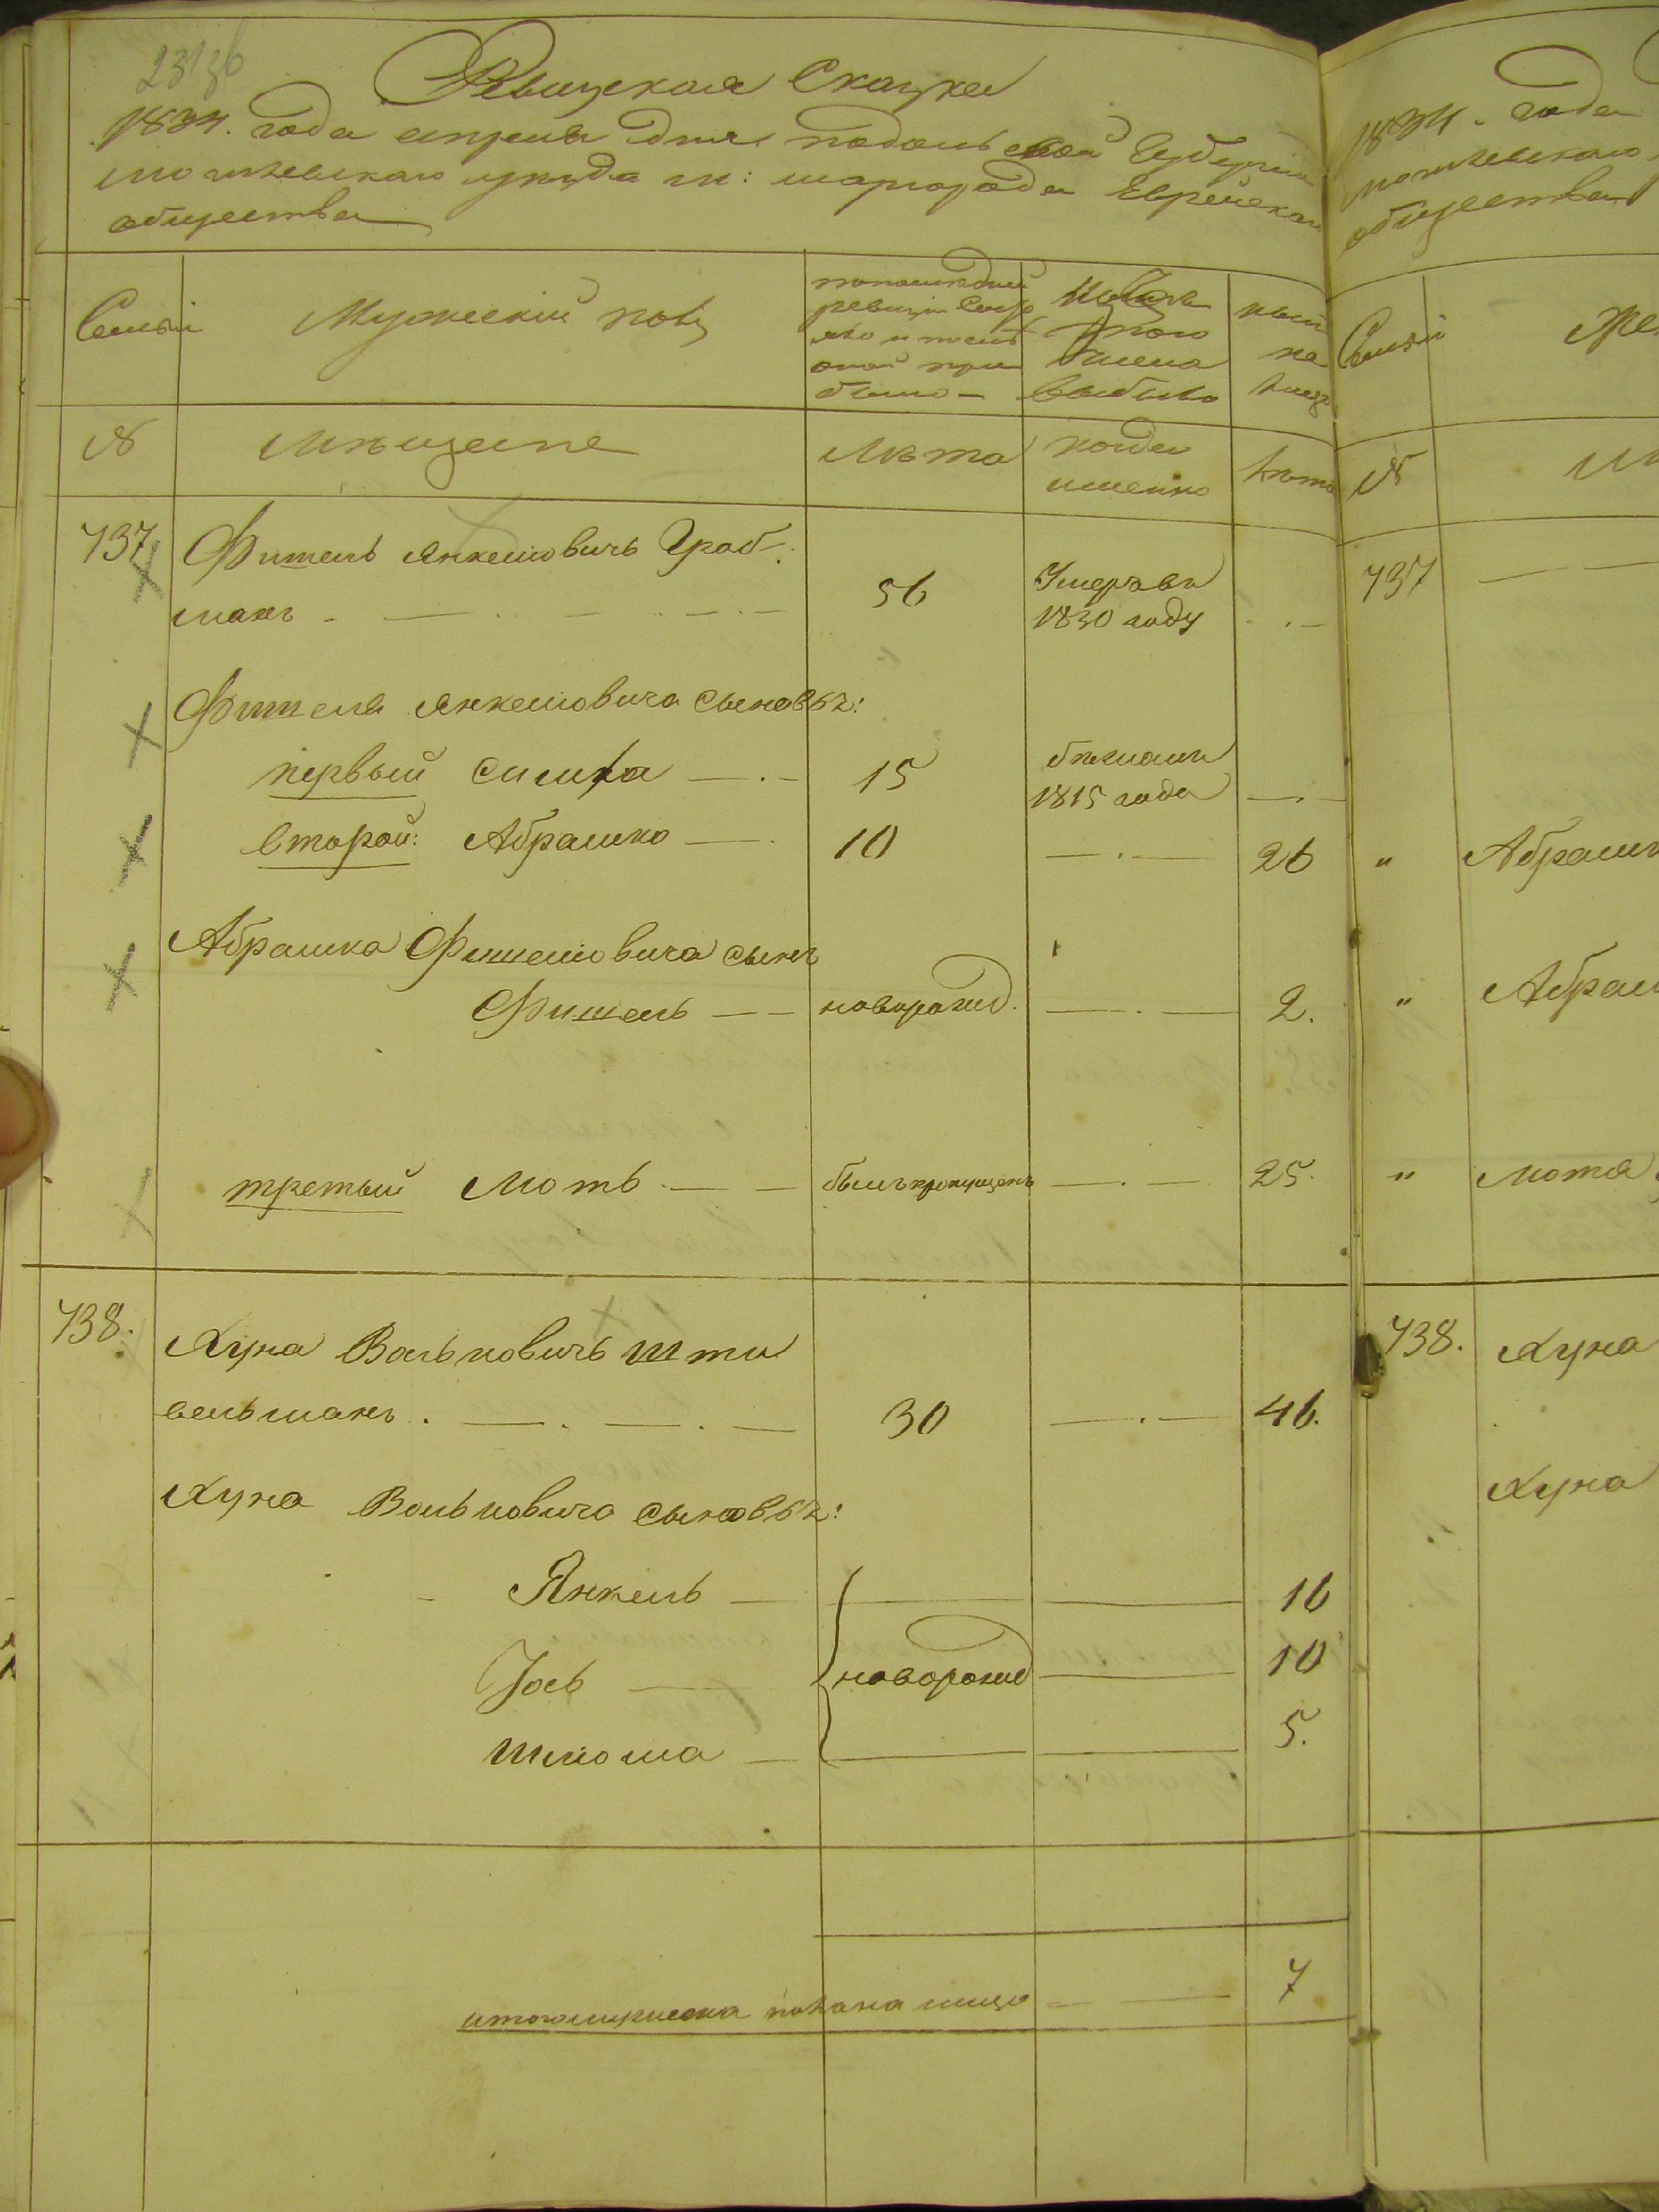 Ревизская Сказка
1834. года апреля дня подольской Губернии
могилевскаго уезда м: шаргорода Еврейскаго
общества
Семьи
Мужескій полъ
по последней
ревизіи Состо
яло и после
оной при
было
Изъ
того
числа
выбыло
ныне
на
лицо
№
Мещане
Лета
когда
именно
Лета
737
Фишель Янкелiовичъ Граб
манъ
56
Умеръ въ
1830 году
Фишеля Янкелiовича сыновья:
первый Симха
15
бегалъ
1815 года
второй: Абрашко
10
26
Абрашка Фишелiовича сынъ
Фишель
новорожд.
2.
третьій Моть
былъ пропущенъ
25.
738.
Хуна Вольковичъ Шти
вельманъ.
30
46.
Хуна Вольковича сыновья:
Янкель
16
Іось
новорожд
10
Шліома
5.
итого мужеска пола на лицо
7
1834. года
могилевскаго
общества
Семьи
Же
№
737
"
Абрашк
"
Абраш
"
Мотя
738.
Хуна
Хуна